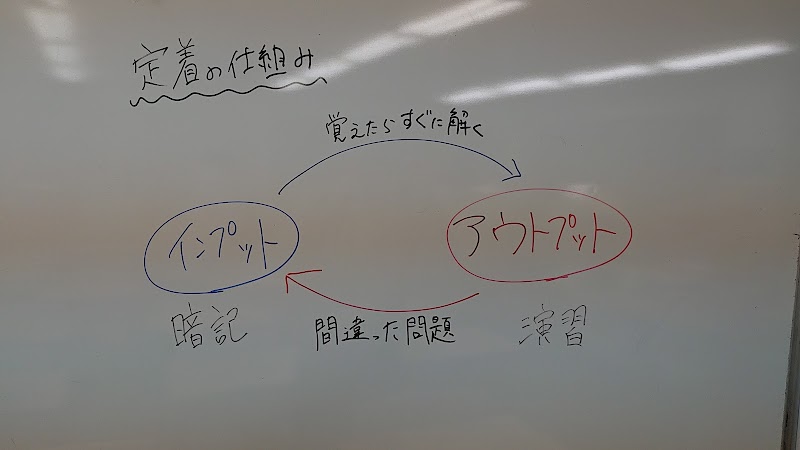 定着の仕組み
覚えたらすぐに解く
インプット
アウトプット
暗記
間違った問題
演習